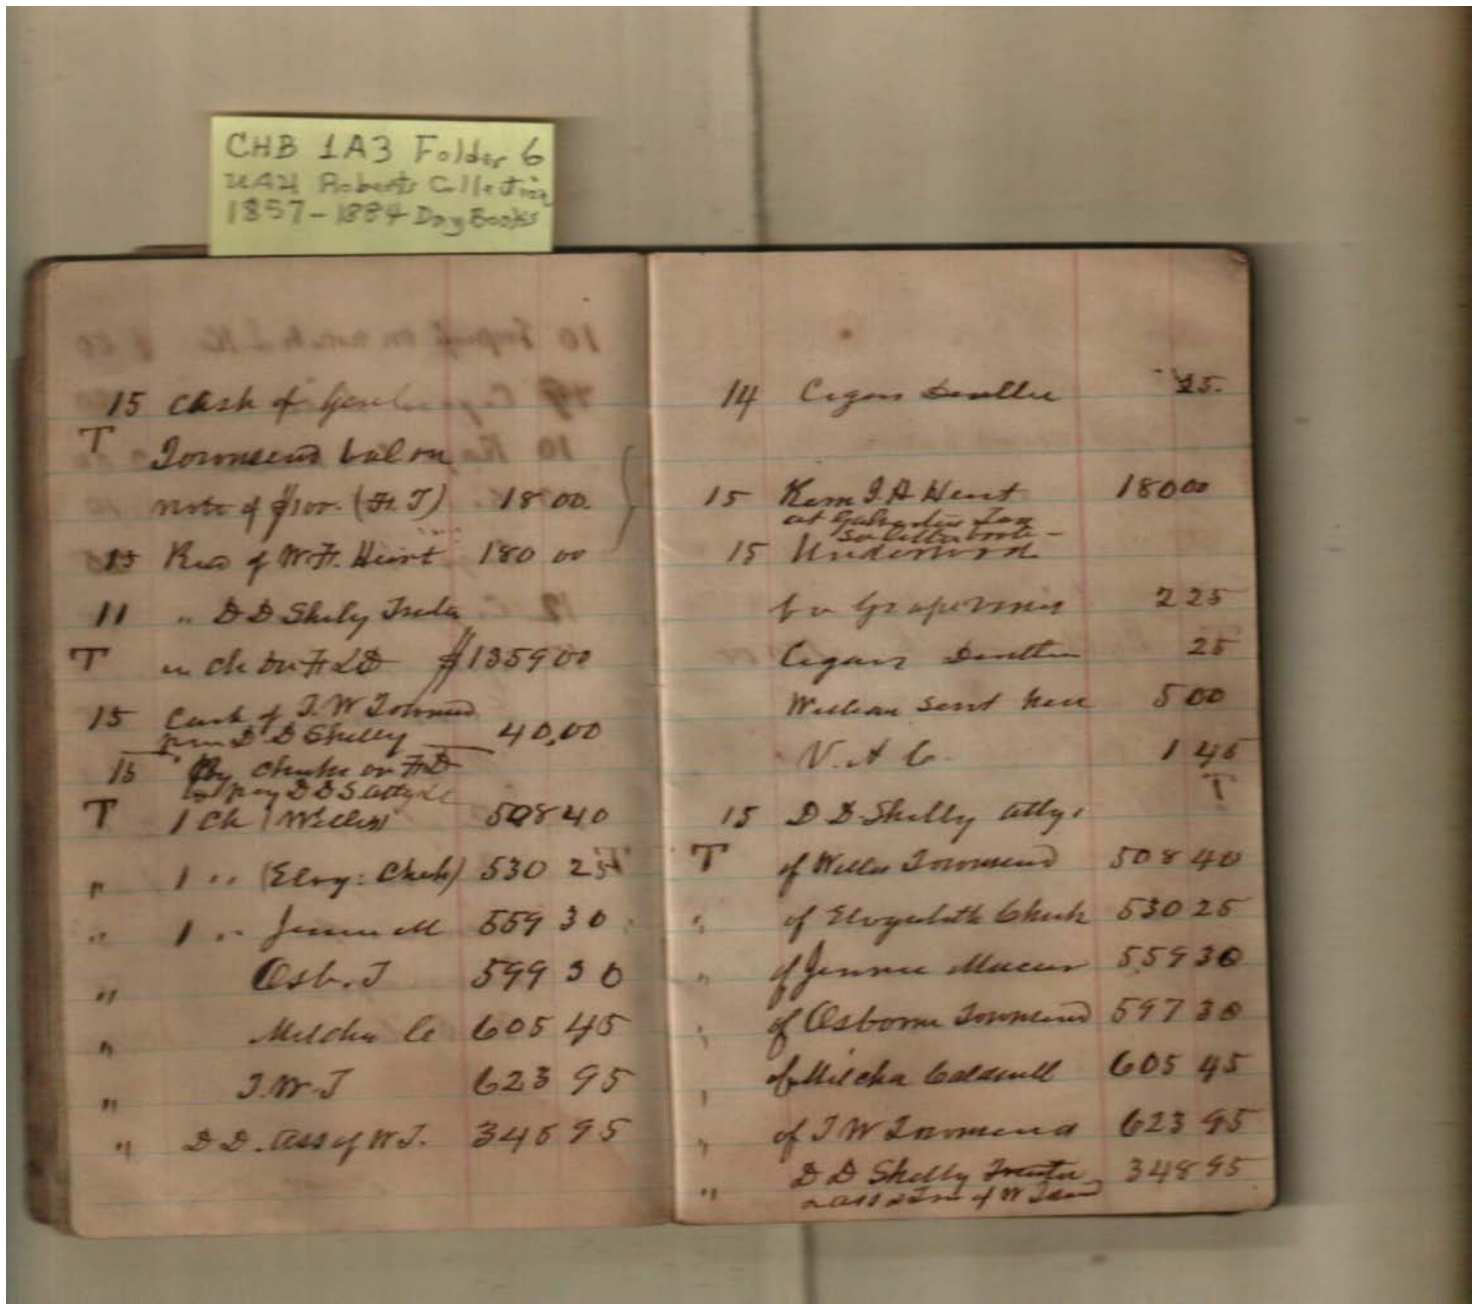 CHB 1A3 Folder 6
UAH Roberts Collection
1857-1884 Day Books
15 Cash of
T Townsend bal on
note of $100. (H. T) 18 00.
15 Rec of W. H. 180 00
11 " D D Shely
T in ch on $1359 00
15 Cash of T. W Townsend
D D Shelly 40,00
15 By checks on
to pay D D S atty
T 1 Ch Willis 508 40
" 1 " (Elvy: Cheek) 530 25
" 1 " Jennie M 559 30
" Osb. T 599 30
" Milcha C 605 45
" T. W. T 623 95
" D D. ass of W T. 348 95
14 Cigars 25.
15 180 00
at
15 Underwood
for Grapevines 2 25
Cigars 25
William sent here 5 00
V. A C. 1 45
T
15 D D Shelly atty.
T of Willis Townsend 508 40
" of Elizabeth Cheek 530 25
" of Jennie 559 30
" of Osborne Townsend 597 30
" of Milcha Caldwell 605 45
" of T W Townsend 623 95
" D D Shelly Trustee 348 95
of W